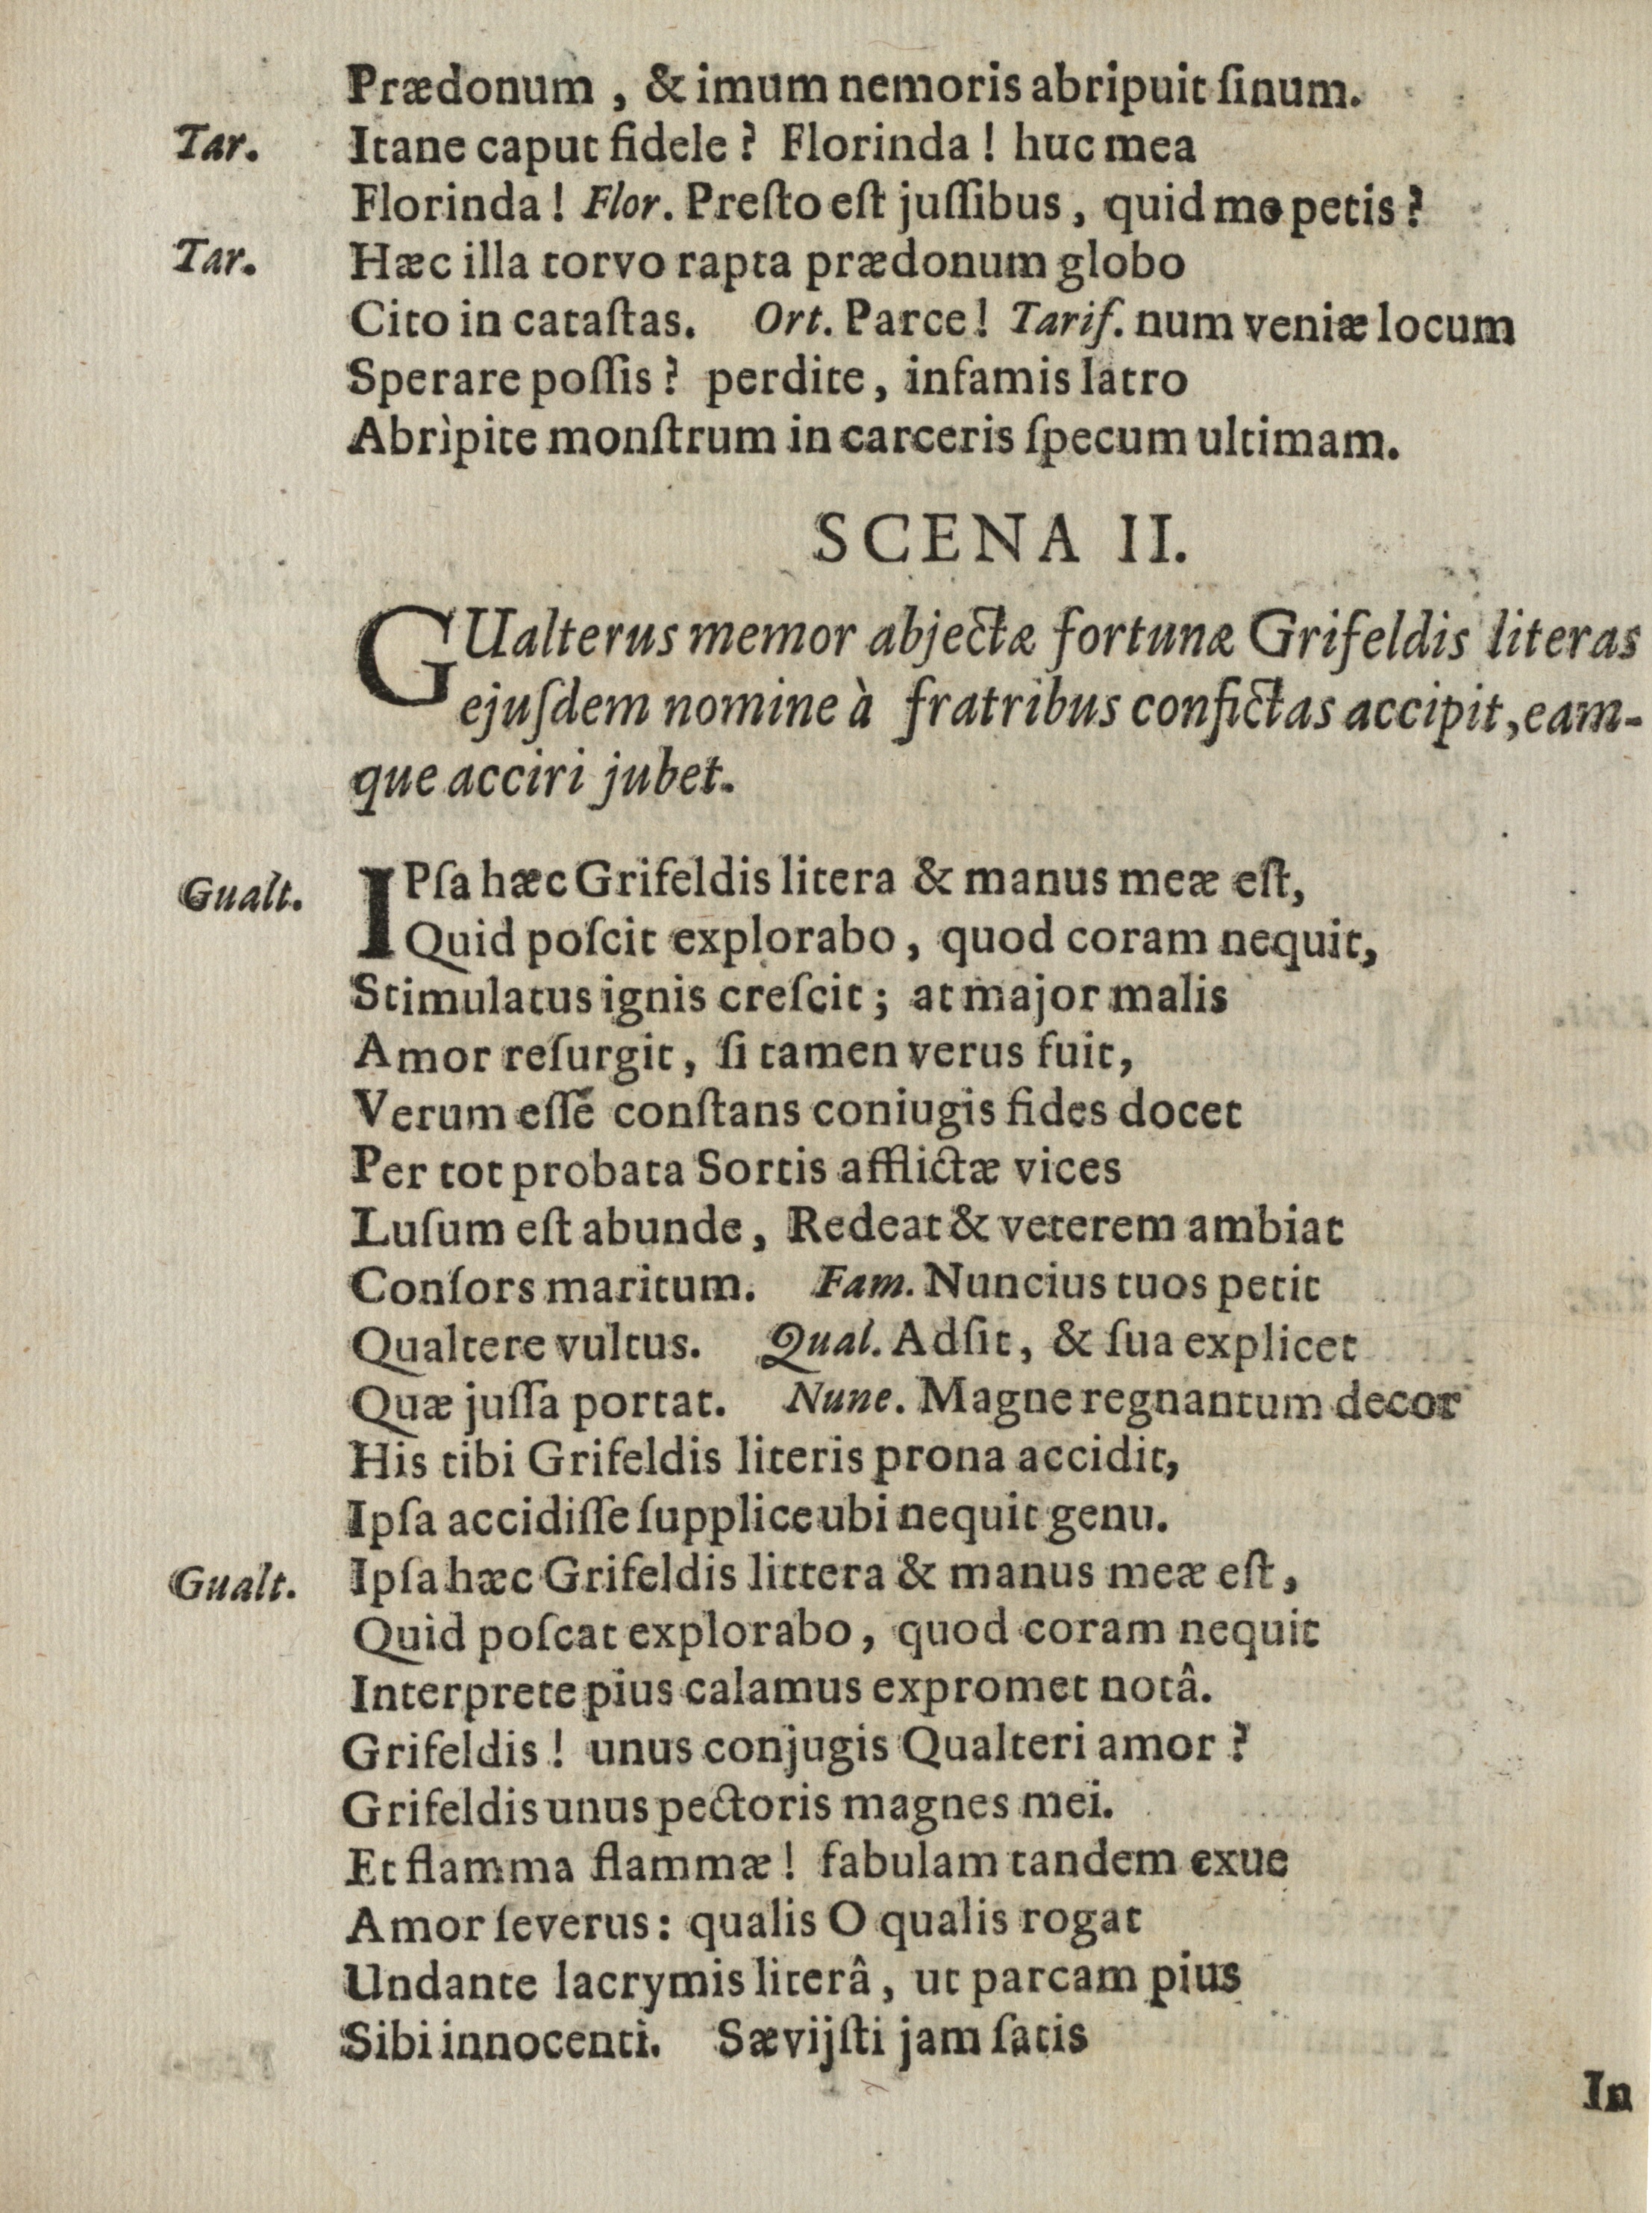 Prædonum , & imum nemoris abripuit ſinum.
Tar. Itane caput fidele ? Florinda ! huc mea
Florinda ! Flor. Preſto eſt juſſibus , quid me petis ?
Tar. Hæc illa torvo rapta prædonum globo
Cito in cataſtas. Ort. Parce ! Tariſ. num veniæ locum
Sperare poſſis ? perdite , infamis latro
Abrìpite monſtrum in carceris ſpecum ultimam.
SCENA II.
GUalterus memor abjectæ fortunæ Griſeldis literas
ejuſdem nomine à fratribus confictas accipit , eam-
que acciri jubet.
Gualt. IPſa hæc Grifeldis litera & manus meæ eſt,
Quid poſcit explorabo , quod coram nequit,
Stimulatus ignis creſcit ; at major malis
Amor reſurgit , ſi tamen verus fuit,
Verum eſſé conſtans coniugis fides docet
Per tot probata Sortis afflictæ vices
Luſum eſt abunde , Redeat & veterem ambiat
Conſors maritum. Fam. Nuncius tuos petit
Qualtere vultus. Qual. Adſit , & ſua explicet
Quæ juſſa portat. Nune. Magne regnantum decor
His tibi Grifeldis literis prona accidit,
Ipſa accidiſſe ſupplice ubi nequit genu.
Gualt. Ipſa hæc Grifeldis littera & manus meæ eſt ,
Quid poſcat explorabo , quod coram nequit
Interprete pius calamus expromet notâ.
Grifeldis ! unus conjugis Qualteri amor ?
Grifeldis unus pectoris magnes mei.
Et flamma flammæ ! fabulam tandem exue
Amor ſeverus : qualis O qualis rogat
Undante lacrymis literâ , ut parcam pius
Sibi innocenti. Sævijſti jam ſatis
In